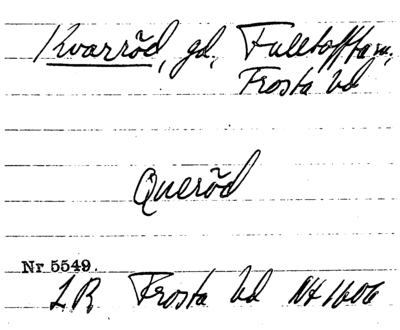 Kvarröd, gd, Fulltofta sn,
Frosta hd
Queröd
Nr 5549.
LR Frosta hd N:1 1606